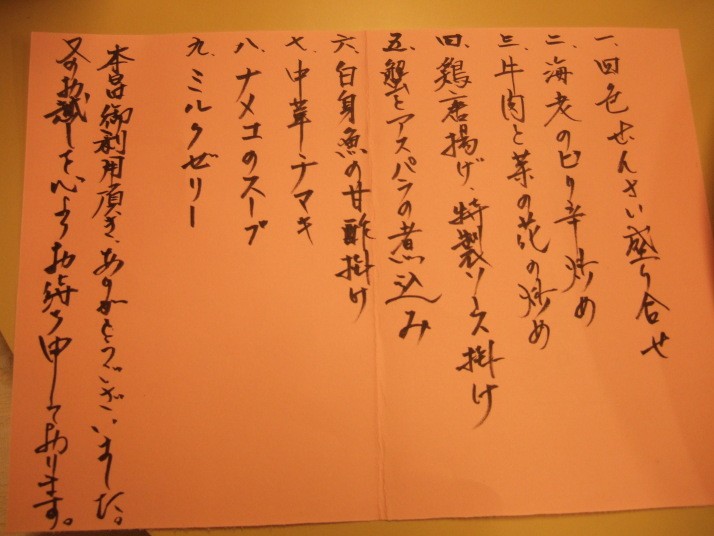 一、四色ぜんさい盛り合せ
二、海老のピリ辛炒め
三、牛肉と菜の花の炒め
四、鶏唐揚げ、特製ソース掛け
五、蟹とアスパラの煮込み
六、白身魚の甘酢掛け
七、中華チマキ
八、ナメコのスープ
九、ミルクゼリー
本日御利用頂き、ありがとうございました。
又のお越しを心よりお待ち申しております。